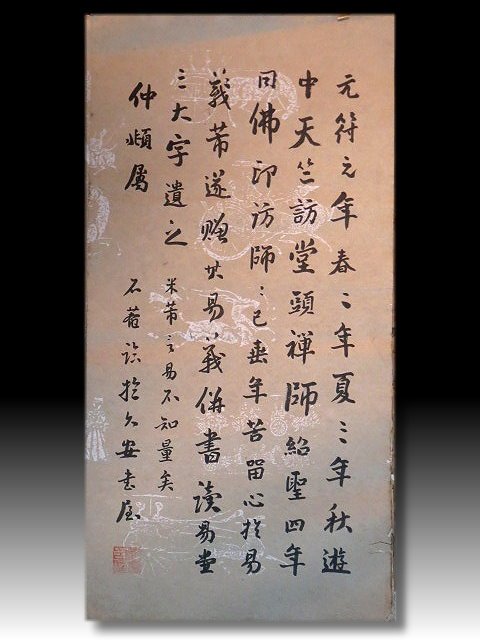 元符元年春二年夏三年秋遊
中天竺訪堂頭禪師紹聖四年
同佛印訪師〻已垂年苦留心於易
義芾遂贈其易義併書讀易堂
三大字遺之 米芾言易不知量矣
仲頫屬 石於久安書屋